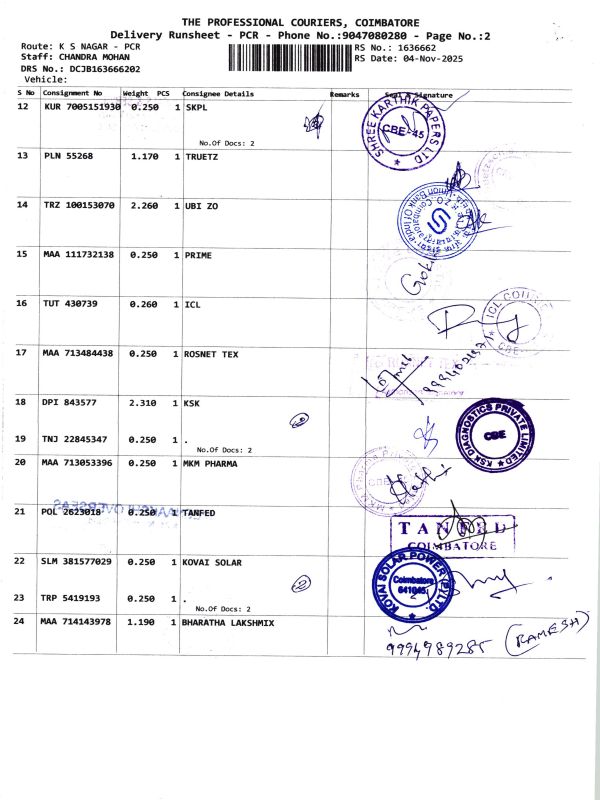 THE PROFESSIONAL COURIERS, COIMBATORE
Delivery Runsheet - PCR - Phone No.:9047080280 - Page No.:2
Route: K S NAGAR - PCR
RS No.: 1636662
Staff: CHANDRA MOHAN
RS Date: 04-Nov-2025
DRS No.: DCJB163666202
Vehicle:
S No Consignment No Weight PCS Consignee Details Remarks Seal & Signature
12 KUR 7005151930 0.250 1 SKPL
No.Of Docs: 2
SHREE KARTHIK PAPERS LTD
CBE-45
13 PLN 55268 1.170 1 TRUETZ
14 TRZ 100153070 2.260 1 UBI ZO
15 MAA 111732138 0.250 1 PRIME
16 TUT 430739 0.260 1 ICL
ICL
CBE-
17 MAA 713484438 0.250 1 ROSNET TEX
18 DPI 843577 2.310 1 KSK
2
KSK DIAGNOSTICS PRIVATE LIMITED
CBE
19 TNJ 22845347 0.250 1 .
No.Of Docs: 2
20 MAA 713053396 0.250 1 MKM PHARMA
21 POL 2623018 0.250 1 TANFED
TANFED
COIMBATORE
22 SLM 381577029 0.250 1 KOVAI SOLAR
2
KOVAI SOLAR POWER (P) LTD.
Coimbatore
641045
23 TRP 5419193 0.250 1 .
No.Of Docs: 2
24 MAA 714143978 1.190 1 BHARATHA LAKSHMIX
(RAMESH)
9994989285